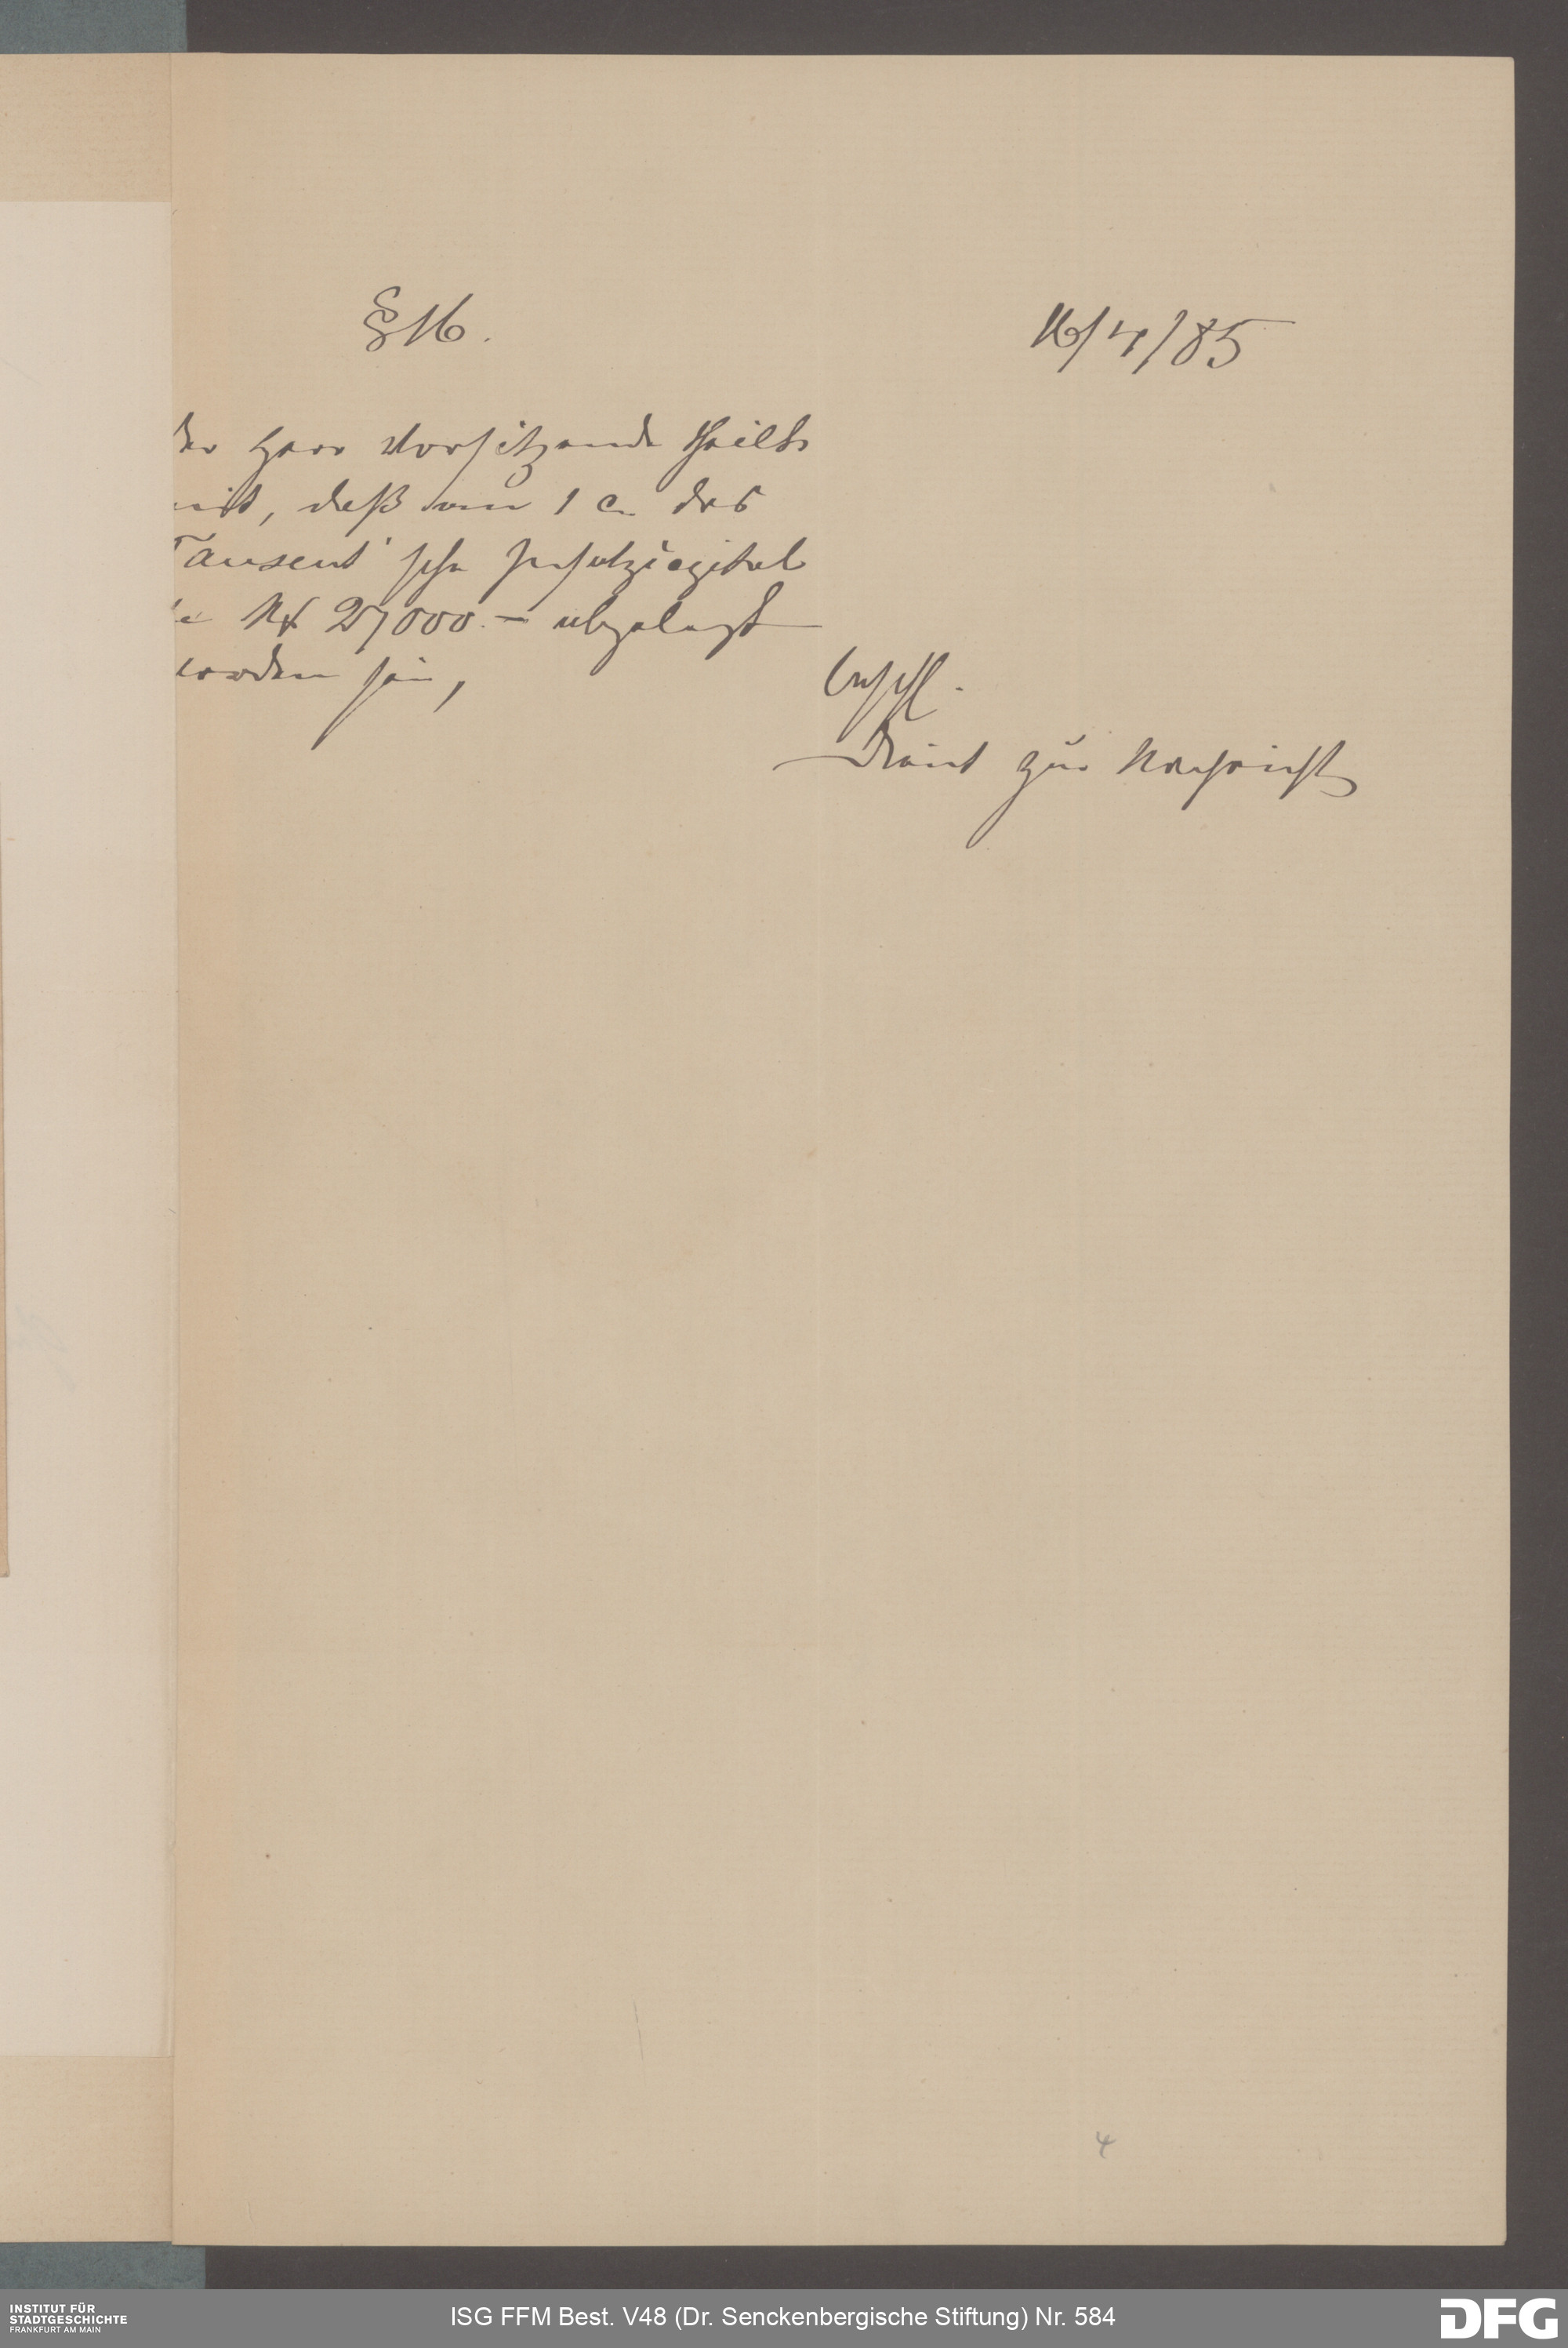 § 16.
16/4/85
der Herr Vorsitzende theilte
mit, daß am 1 c. das
Tausent'sche Insatzcapital
de M 27000.- abgelegt
worden sei,
beschl.
Dient zur Nachricht
4
INSTITUT FÜR
STADTGESCHICHTE
FRANKFURT AM MAIN
ISG FFM Best. V48 (Dr. Senckenbergische Stiftung) Nr. 584
DFG